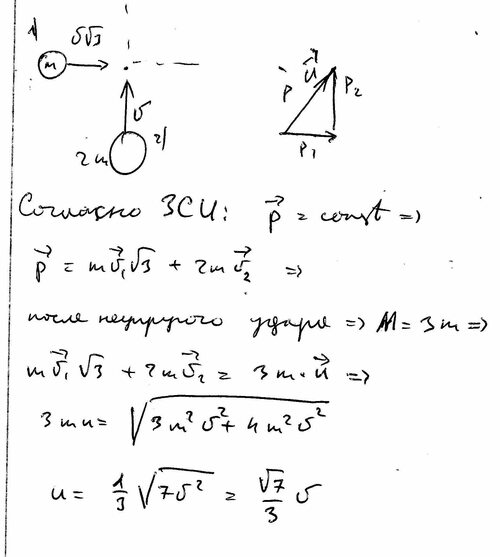 1)
υ√3
m
υ
2m
2)
p⃗
u⃗
p₂
p₁
Согласно ЗСИ: p⃗ = const =>
p⃗ = mυ⃗₁√3 + 2mυ⃗₂ =>
после неупругого удара => M = 3m =>
mυ⃗₁√3 + 2mυ⃗₂ = 3m·u⃗ =>
3mu = √(3m²υ² + 4m²υ²)
u = 1/3 √(7υ²) = √7/3 υ